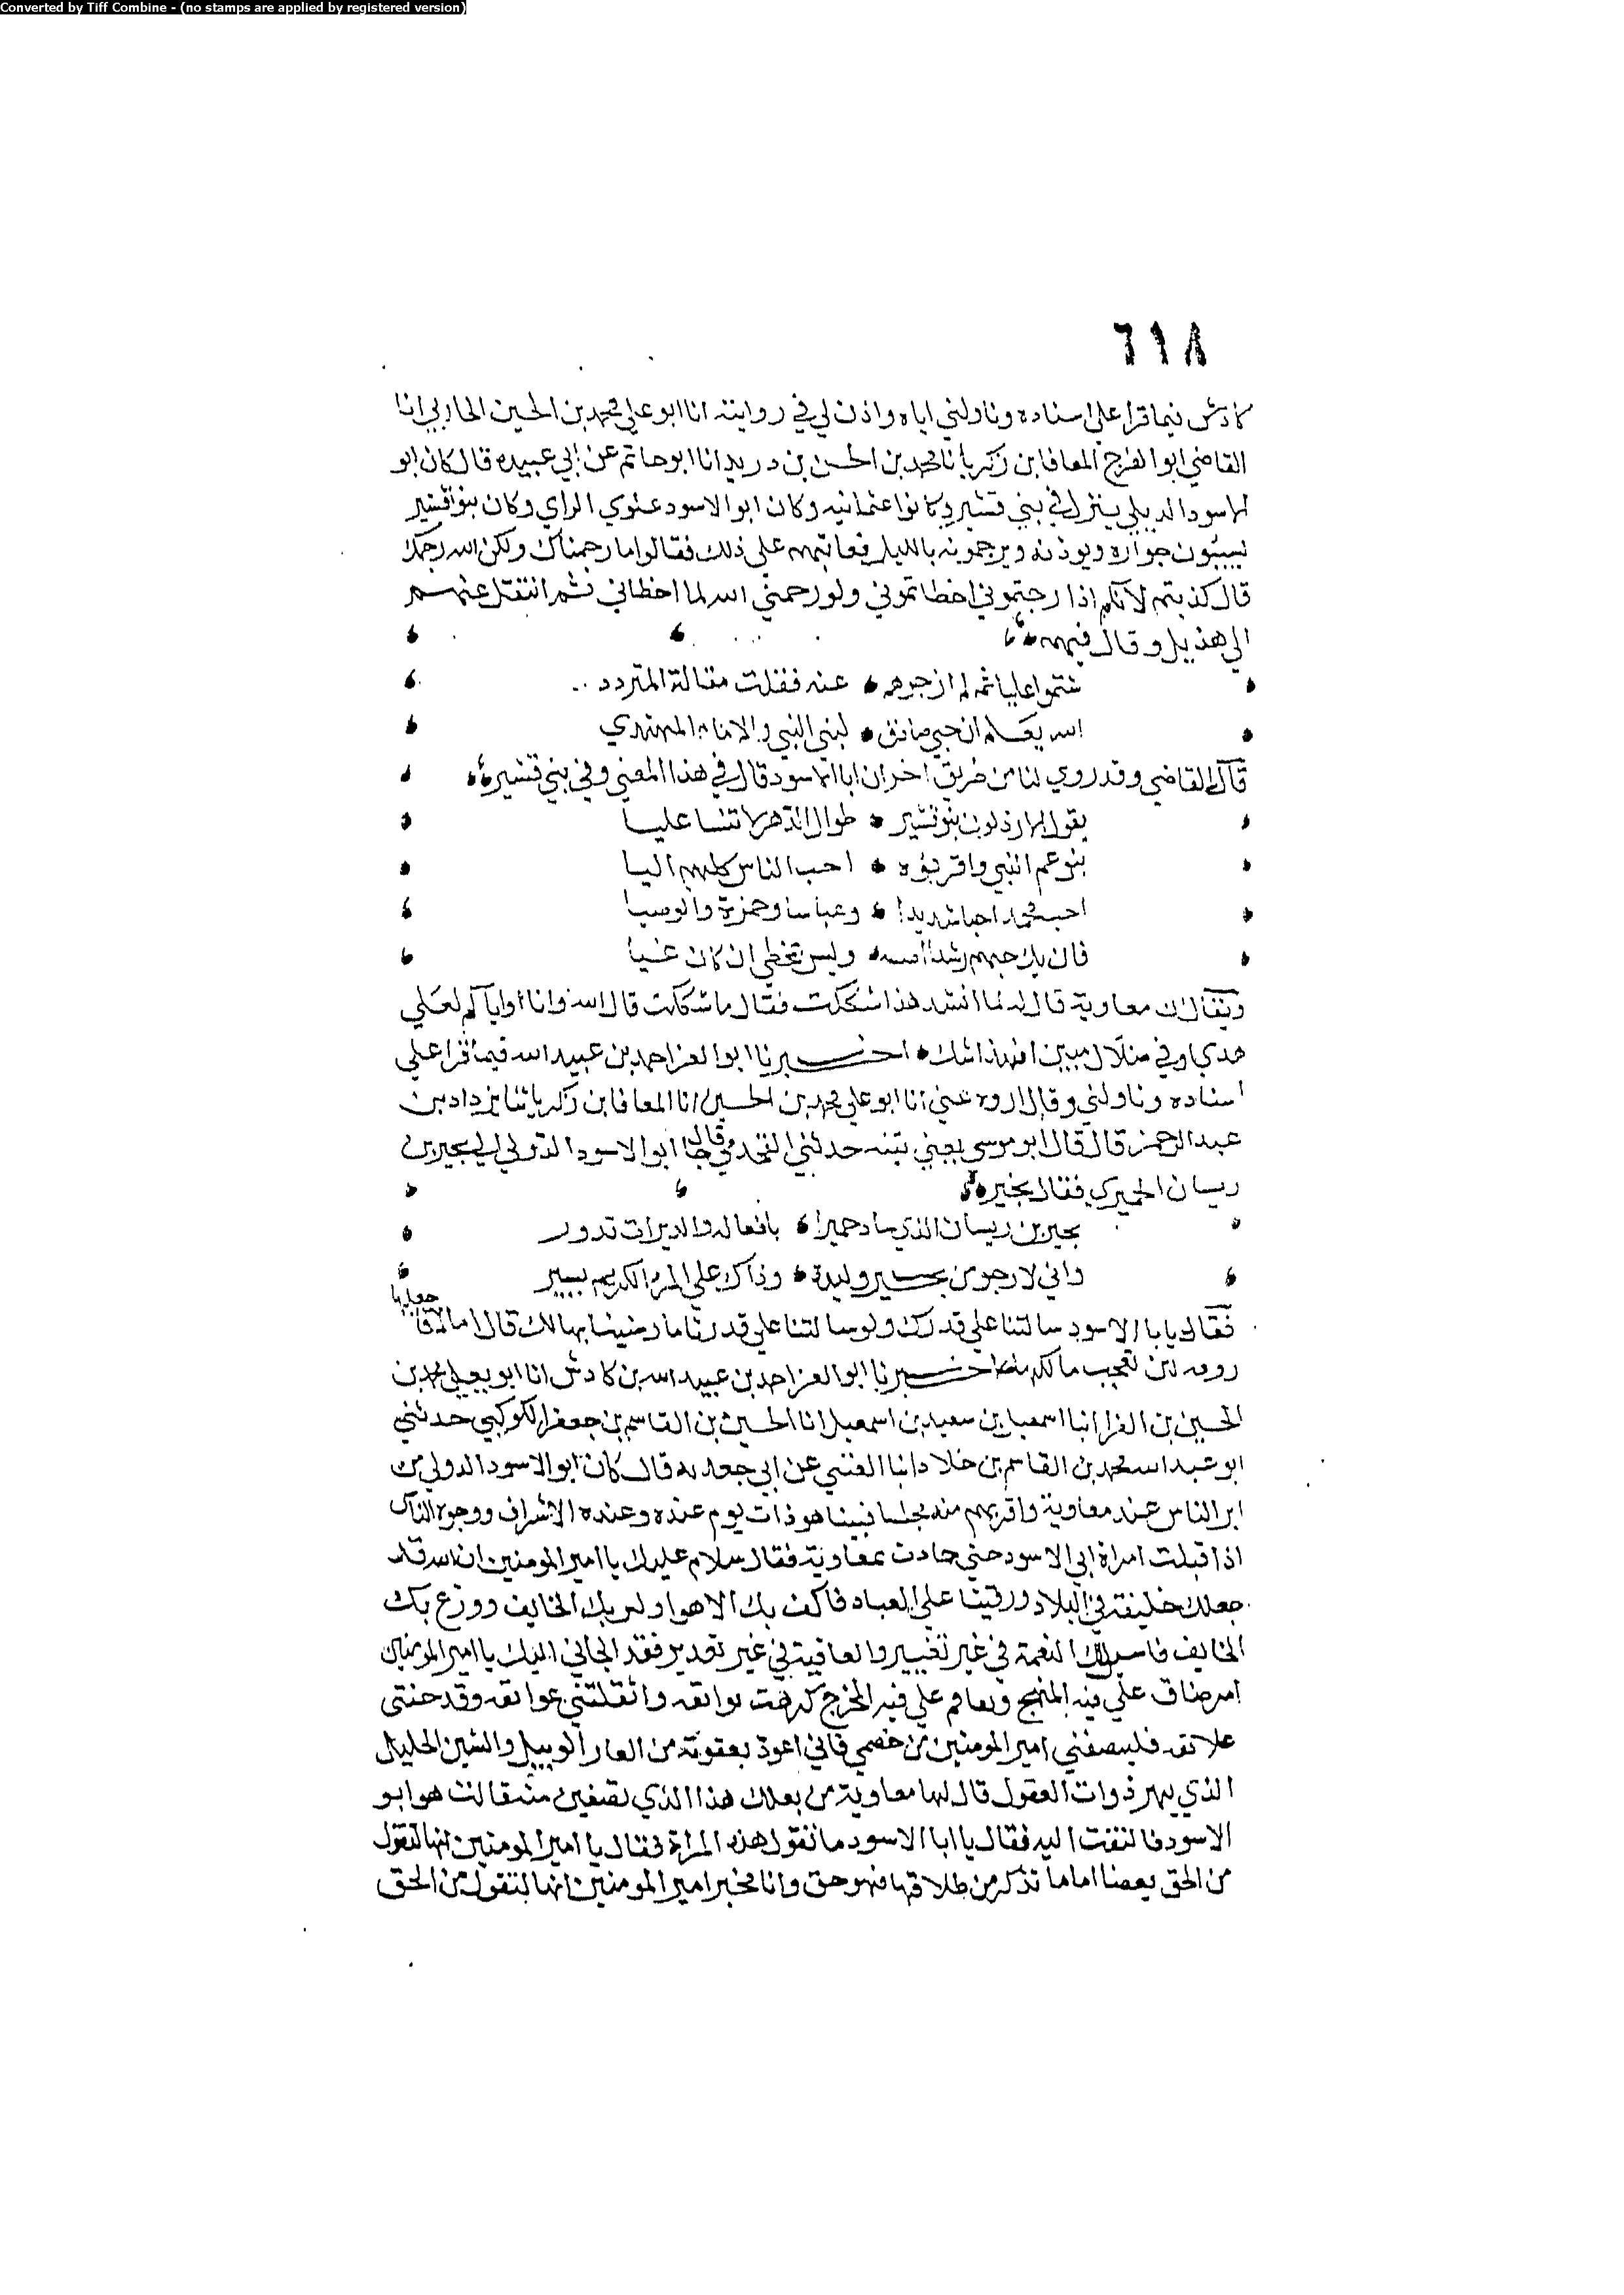 Converted by Tiff Combine - (no stamps are applied by registered version)
٦١٨
كادش فيما قرا على اسناده وناولني اياه واذن لي في روايته انا ابو علي محمد بن الحسين الجازري انا
القاضي ابو الفرج المعافا بن زكريا نا محمد بن الحسن بن دريد انا ابو حاتم عن ابي عبيده قال كان ابو
الاسود الديلي ينزل في بني قشير وكانوا عثمانيه وكان ابو الاسود علوي الراي وكان بنو قشير
يسيئون جواره ويوذنه ويرجمونه بالليل فعاتبهم على ذلك فقالوا ما رجمناك ولكن الله رجمك
قال كذبتم لانكم اذا رجمتموني اخطاتموني ولو رجمني الله لما اخطاني ثم انتقل عنهم
الى هذيل وقال فيهم
شتموا عليا ثم لم ازجرهم عنه فقلت مقالة المتردد
الله يعلم ان حبي صادق لبني النبي والامام المهتدي
قال القاضي وقد روي لنا من طريق اخر ان ابا الاسود قال في هذا المعنى وفي بني قشير
يقول الارذلون بنو قشير طوال الدهر لا تنسا عليا
بنو عم النبي واقربوه احب الناس كلهم اليا
احب محمدا حبا شديدا وعباسا وحمزة والوصيا
فان يك حبهم رشدا اصبه وليس بمخطي ان كان غيا
ويقال ان معاوية قال له لما انشد هذا شككت فقال ما شككت قال الله وانا او اياكم لعلي
هدى او في ضلال مبين افهذا شك اخبرنا ابو العز احمد بن عبيد الله فيما قرا علي
اسناده وناولني وقال اروه عني انا ابو علي محمد بن الحسين انا المعافا بن زكريا ثنا يزداد بن
عبد الرحمن قال قال ابو موسى يعني تينه حدثني القحذمي قال جا ابو الاسود الدولي الى بحير بن
ريسان الحميري فقال بحير
بحير بن ريسان الذي ساد حميرا بافعاله والديرات تدور
واني لارجو من بحير وليدة وذاك علي المرء الكريم يسير
فقال يابا الاسود سالتنا علي قدرك ولو سالتنا علي قدرنا ما رضينا بها لك قال اما لا فاجعلها
روقه لمن تعجب مالكم اخبرنا ابو العز احمد بن عبيد الله بن كادش انا ابو يعلي محمد بن
الحسين بن الفرا انبا اسمعيل بن سعيد بن اسمعيل انا الحسين بن القاسم بن جعفر الكوكبي حدثني
ابو عبد الله محمد بن القاسم بن خلاد انبا العتبي عن ابي جعد به قال كان ابو الاسود الدولي من
ابر الناس عند معاوية واقربهم منه مجلسا فبينا هو ذات يوم عنده وعنده الاشراف ووجوه الناس
اذ اقبلت امراة ابي الاسود حتى حاذت بمعاوية فقال سلام عليك يا امير المومنين ان الله قد
جعلك خليفة في البلاد ورقيبا علي العباد فاكف بك الاهوا وامن بك الخايف ووزع بك
الخايف فاسل لك النعمة في غير تغيير والعافية في غير تعذير فقد الجاني اليك يا امير المومنين
امر ضاق علي فيه المنهج وتعاقم علي فيه المخرج كرهت بوائقه واثقلتني عوائقه وقد حنتي
علائقه فلينصفني امير المومنين من خصمي فاني اعوذ بعقوته من العار الوبيل والشين الجليل
الذي يبهر ذوات العقول قال لها معاوية من بعلك هذا الذي تصفين منه قالت هو ابو
الاسود فالتفت اليه فقال يا ابا الاسود ما تقول هذه المراة فقال يا امير المومنين انها لتقول
من الحق بعضا اما ما تذكر من طلاقها فهو حق وانا مخبر امير المومنين انها لتقول من الحق